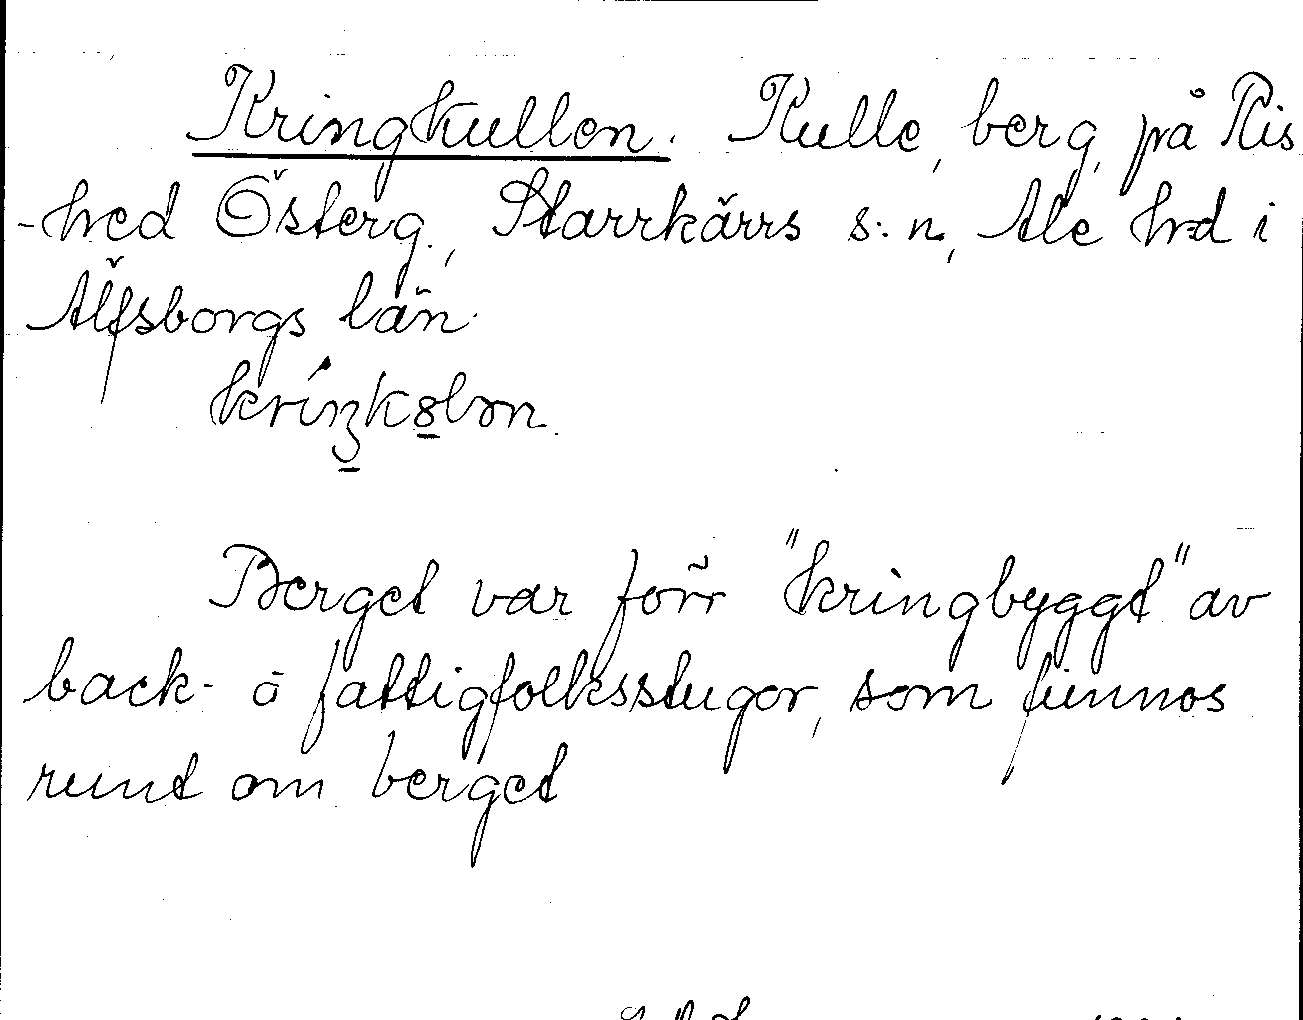 Kringkullen. Kulle, berg, på Ris
-hed Österg., Starrkärrs s:n, Ale h-d i
Älfsborgs län.
Berget var förr "kringbyggt" av
back- o fattigfolksstugor, som funnos
runt om berget